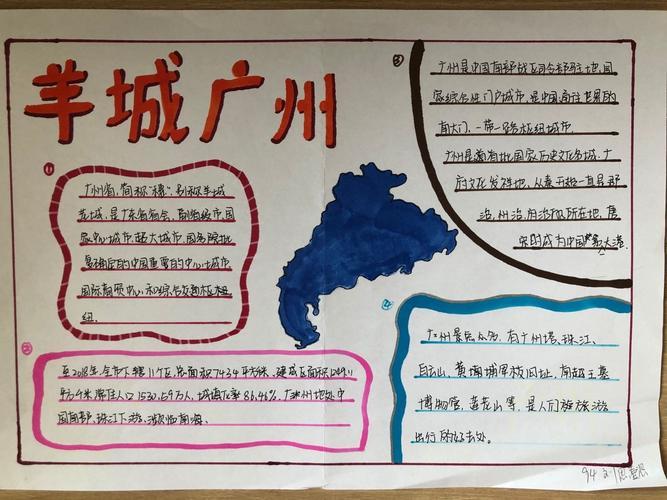 羊城广州
①
广州省,简称“穗”,别称羊城
花城,是广东省省会、副省级市,国
家中心城市,超大城市,国务院批
复确定的中国重要的中心城市
国际商贸中心,和综合交通枢纽
纽.
②
至2018年,全市下辖11个区,总面积7434平方米,建成区面积1249.11
平方千米,常住人口1530.59万人,城镇化率86.46%.广州地处中
国南部、珠江下游、濒临南海.
③
广州是中国南部战区司令部驻地,国
家综合性门户城市,是中国南往世界的
南大门,一带一路枢纽城市
广州是首批国家历史文化名城,广
府文化发祥地,从秦开始一直是郡
治、州治、府治的所在地,唐
宋时成为中国第大港.
④
广州景点众多,有广州塔、珠江、
白云山,黄埔军校旧址,南越王墓
博物馆,莲花山等,是人们旅游
出行的好去处.
94 刘思